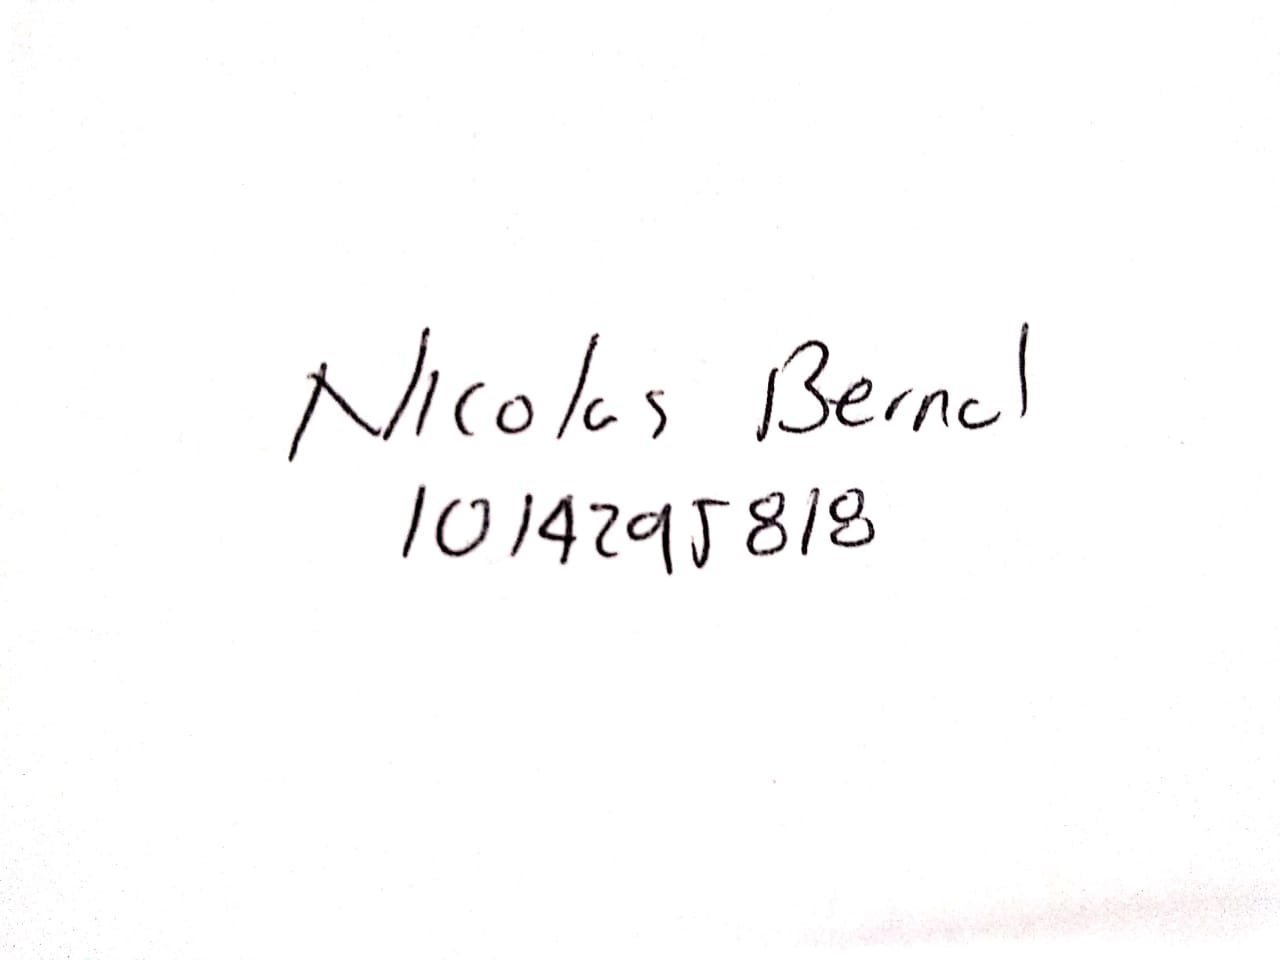 Nicolas Bernal
1014295818